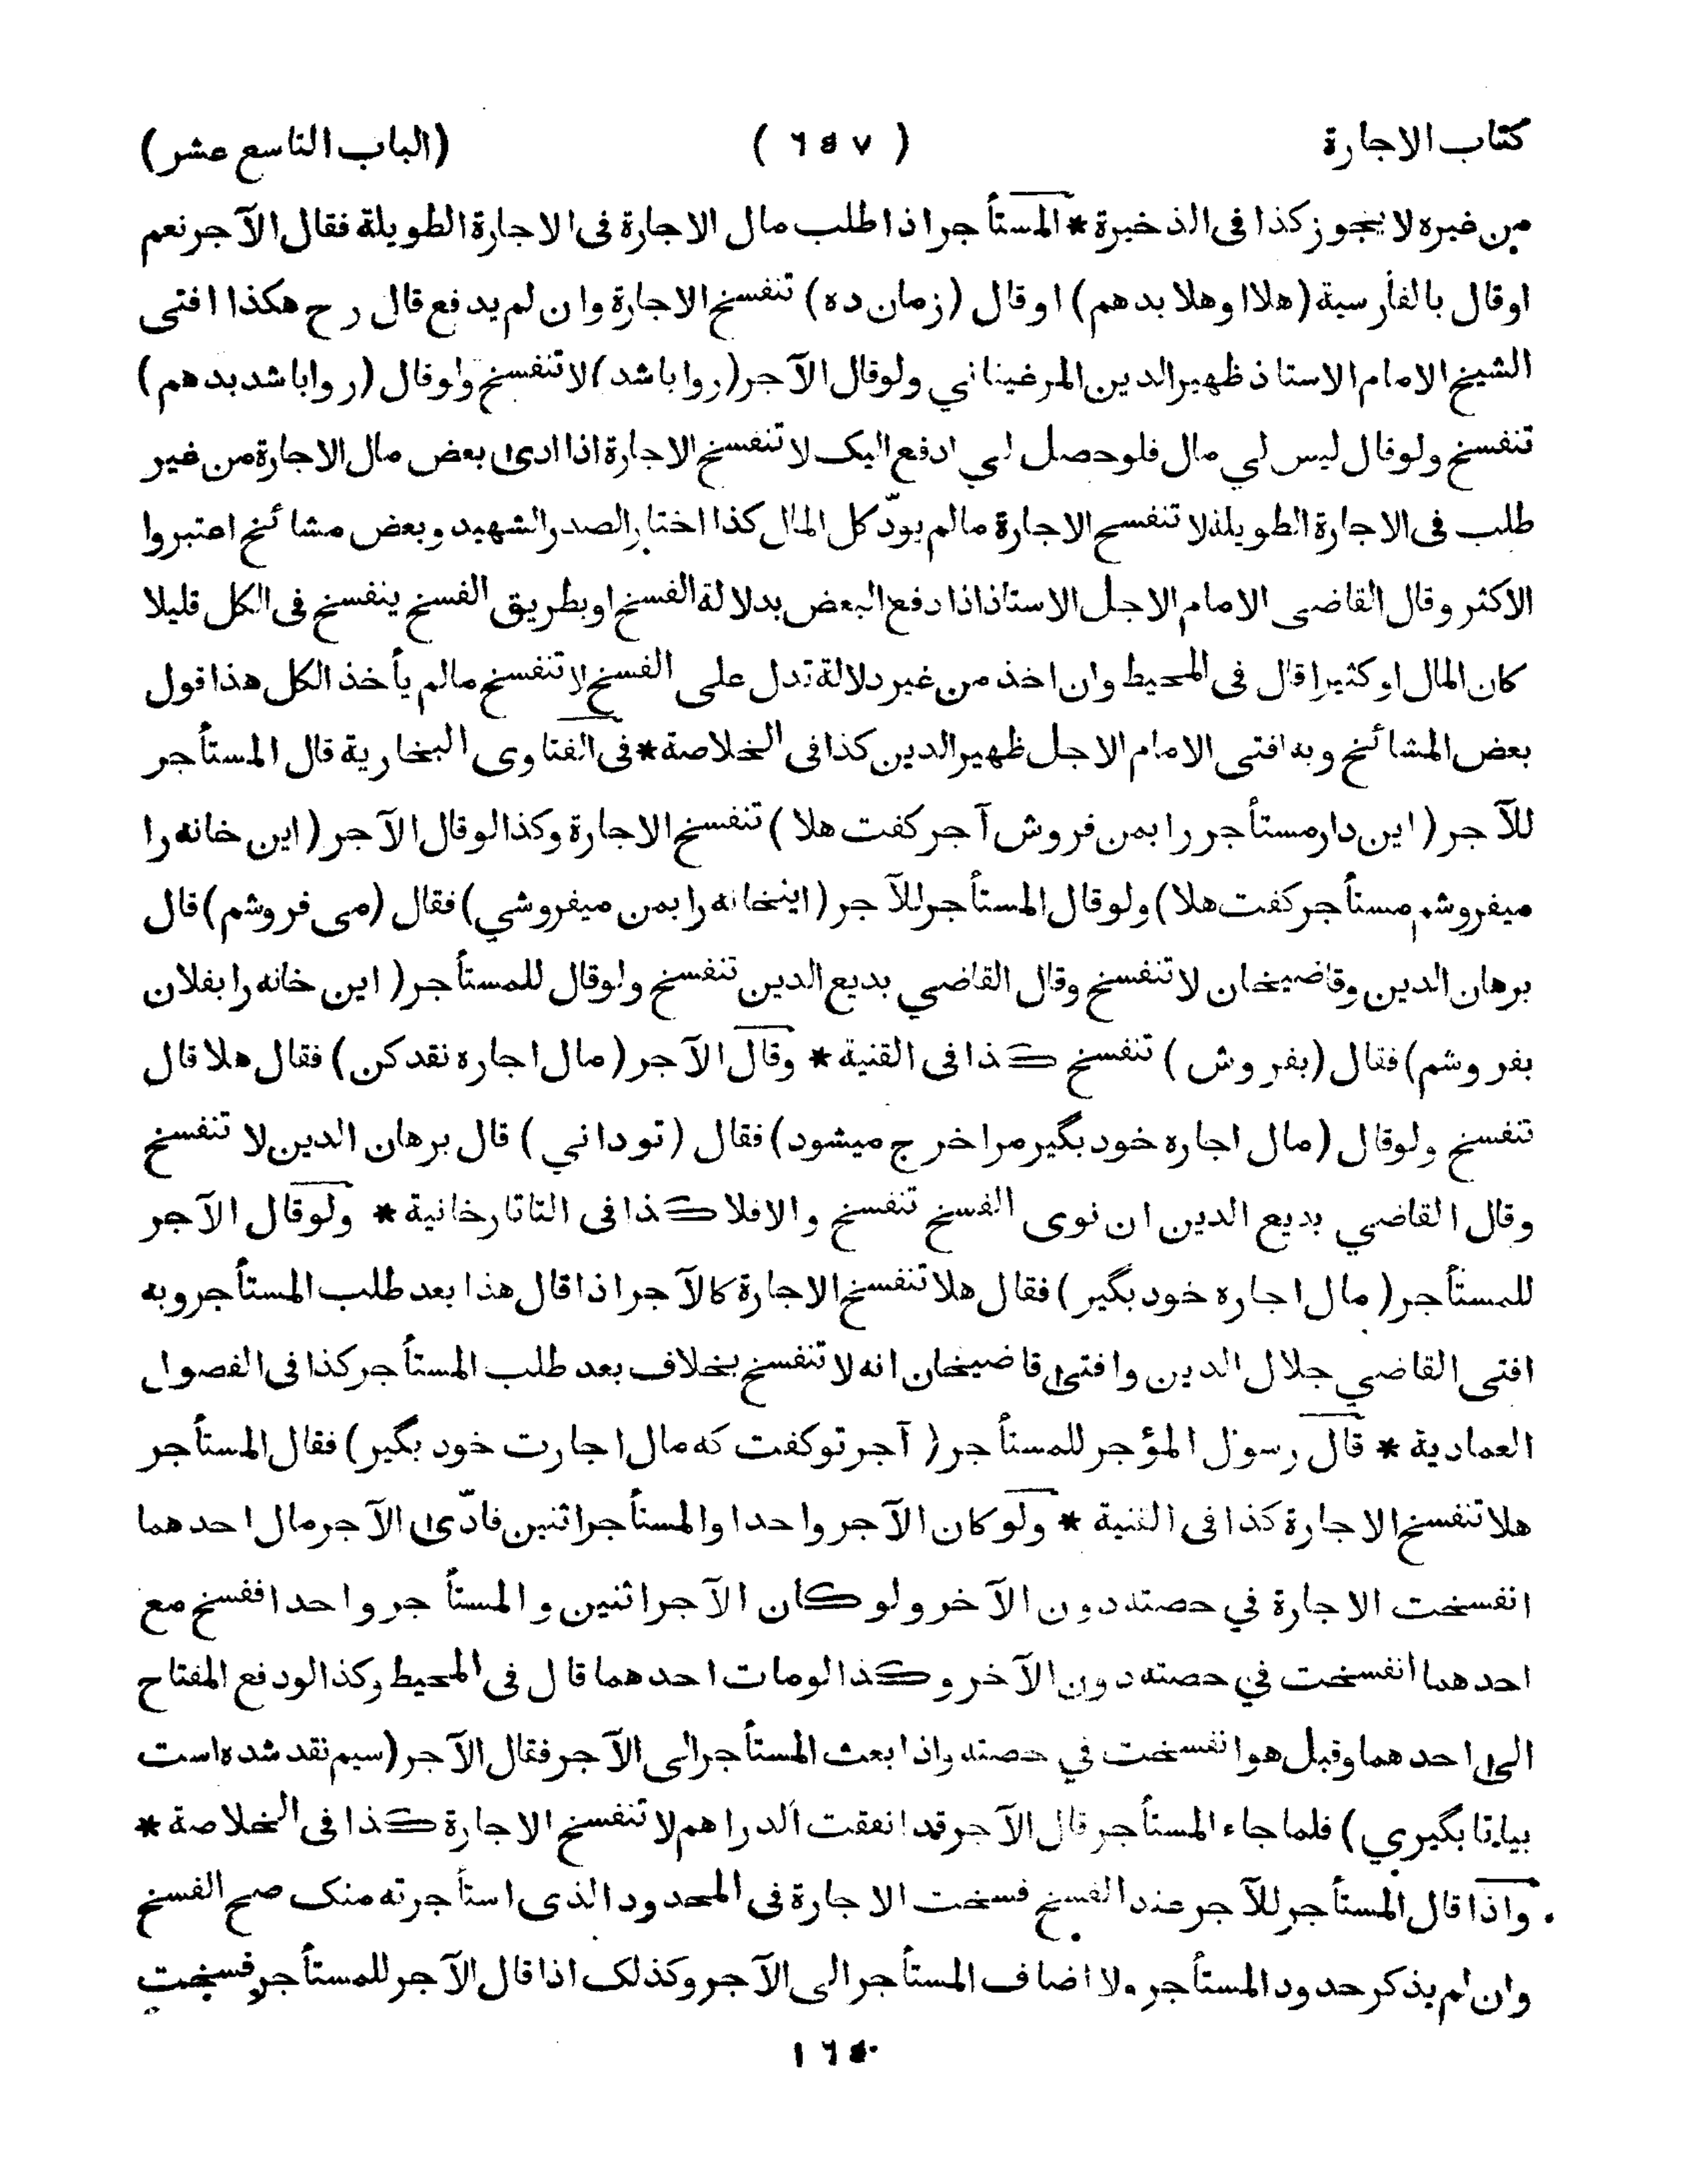 كتاب الاجارة ( ٦٤٧ ) (الباب التاسع عشر)
من غيره لا يجوز كذا فى الذخيرة * المستأجر اذا طلب مال الاجارة فى الاجارة الطويلة فقال الآجر نعم
او قال بالفارسية (هلا او هلا بدهم) او قال (زمان ده) تنفسخ الاجارة وان لم يدفع قال رح هكذا افتى
الشيخ الامام الاستاذ ظهير الدين المرغيناني ولو قال الآجر (روا باشد) لا تنفسخ ولو قال (روا باشد بدهم)
تنفسخ ولو قال ليس لي مال فلو حصل لي ادفع اليک لا تنفسخ الاجارة اذا ادى بعض مال الاجارة من غير
طلب فى الاجارة الطويلة لا تنفسخ الاجارة مالم يودّ كل المال كذا اختار الصدر الشهيد وبعض مشائخ اعتبروا
الاكثر وقال القاضى الامام الاجل الاستاذ اذا دفع البعض بدلالة الفسخ او بطريق الفسخ ينفسخ فى الكل قليلا
كان المال او كثيرا قال فى المحيط وان اخذ من غير دلالة تدل على الفسخ لا تنفسخ مالم يأخذ الكل هذا قول
بعض المشائخ وبه افتى الامام الاجل ظهير الدين كذا فى الخلاصة * فى الفتاوى البخارية قال المستأجر
للآجر (اين دار مستأجر را بمن فروش آجر كفت هلا) تنفسخ الاجارة وكذا لو قال الآجر (اين خانه را
ميفروشم مستأجر كفت هلا) ولو قال المستأجر للآجر (اينخانه را بمن ميفروشي) فقال (مى فروشم) قال
برهان الدين وقاضيخان لا تنفسخ وقال القاضي بديع الدين تنفسخ ولو قال للمستأجر (اين خانه را بفلان
بفروشم) فقال (بفروش) تنفسخ كذا فى القنية * وقال الآجر (مال اجاره نقد كن) فقال هلا قال
تنفسخ ولو قال (مال اجاره خود بگير مرا خرج ميشود) فقال (تو داني) قال برهان الدين لا تنفسخ
وقال القاضي بديع الدين ان نوى الفسخ تنفسخ والا فلا كذا فى التاتارخانية * ولو قال الآجر
للمستأجر (مال اجاره خود بگير) فقال هلا تنفسخ الاجارة كالآجر اذا قال هذا بعد طلب المستأجر وبه
افتى القاضي جلال الدين وافتى قاضيخان انه لا تنفسخ بخلاف بعد طلب المستأجر كذا فى الفصول
العمادية * قال رسول المؤجر للمستأجر (آجر تو كفت كه مال اجارت خود بگير) فقال المستأجر
هلا تنفسخ الاجارة كذا فى القنية * ولو كان الآجر واحدا والمستأجر اثنين فادّى الآجر مال احدهما
انفسخت الاجارة في حصته دون الآخر ولو كان الآجر اثنين والمستأجر واحدا ففسخ مع
احدهما انفسخت في حصته دون الآخر وكذا لو مات احدهما قال فى المحيط وكذا لو دفع المفتاح
الى احدهما وقبل هو انفسخت في حصته واذا بعث المستأجر الى الآجر فقال الآجر (سيم نقد شده است
بيا تا بگيري) فلما جاء المستأجر قال الآجر قد انفقت الدراهم لا تنفسخ الاجارة كذا فى الخلاصة *
واذا قال المستأجر للآجر عند الفسخ فسخت الاجارة فى المحدود الذى استأجرته منك صح الفسخ
وان لم يذكر حدود المستأجر ولا اضاف المستأجر الى الآجر وكذلک اذا قال الآجر للمستأجر فسخت